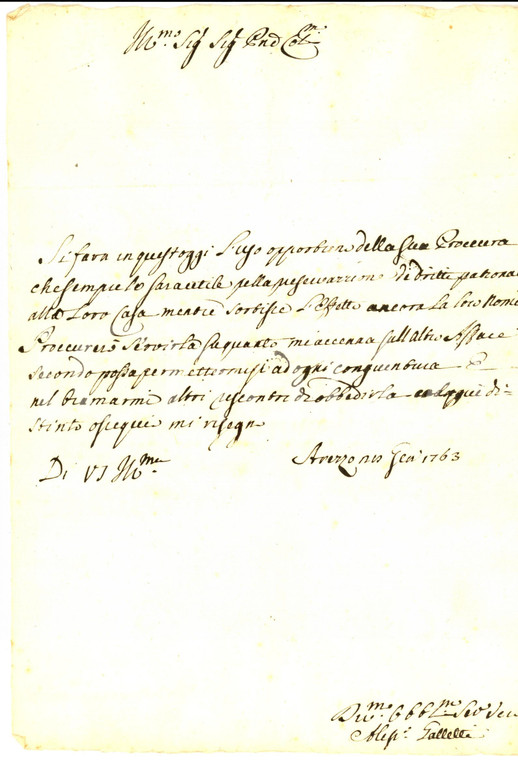 Ill.mo Sig.r Sig.r Pnd Col.mo
Si farà in quest oggi l'uso opportuno della sua Proccura
che sempre le sarà utile nella preservazzione di dritti patrona
alla Loro Casa mentre sortisce l'effetto ancora la loro Nomi
Proccurerò servirla quanto mi accenna sull'altro Affare
secondo possa permettermisi ad ogni congiuntura e
nel bramarmi altri riscontri di obbedirla di-
stinto ossequio mi rassegno
Di VS Ill.ma
Arezzo Gen 1763
Div.mo Obb.mo
Aless.o Falletti